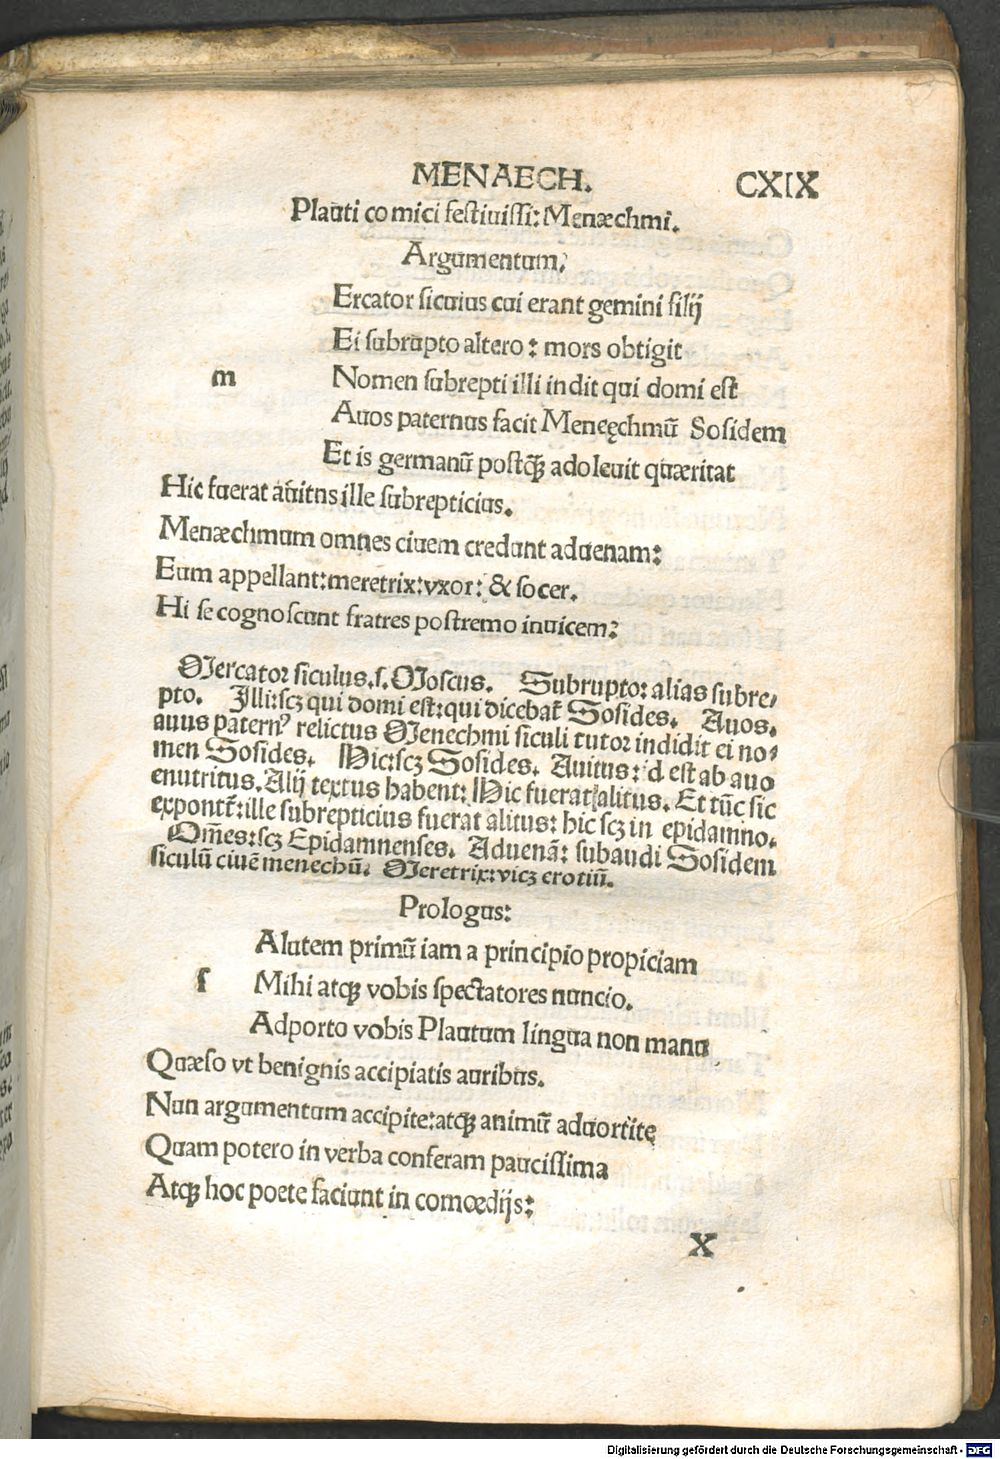 MENAECH. CXIX
Plauti comici festiuissi: Menæchmi.
Argumentum.
Ercator sicuius cui erant gemini filij
Ei subrupto altero: mors obtigit
m Nomen subrepti illi indit qui domi est
Auos paternus facit Meneęchmū Sosidem
Et is germanū postq̄ꝫ adoleuit quæritat
Hic fuerat auitns ille subrepticius.
Menæchmum omnes ciuem credunt aduenam:
Eum appellant: meretrix: vxor: & socer.
Hi se cognoscunt fratres postremo inuicem:
Mercator siculus .s. Moscus. Subrupto: alias subre⸗
pto. Illi: scꝫ qui domi est: qui dicebat̄ Sosides. Auos.
auus patern⁹ relictus Menechmi siculi tutor indidit ei no⸗
men Sosides. Hic: scꝫ Sosides. Auitus: id est ab auo
enutritus. Alij textus habent: Hic fuerat alitus. Et tūc sic
expont̄: ille subrepticius fuerat alitus: hic scꝫ in epidamno.
Om̄es: scꝫ Epidamnenses. Aduenā: subaudi Sosidem
siculū ciuē menechū. Meretrix: vicꝫ erotiū.
Prologus:
Alutem primū iam a principio propiciam
s Mihi atqꝫ vobis spectatores nuncio.
Adporto vobis Plautum lingua non manu
Quæso vt benignis accipiatis auribus.
Nun argumentum accipite: atqꝫ animū aduortitę
Quam potero in verba conferam paucissima
Atqꝫ hoc poete faciunt in comœdijs:
X
Digitalisierung gefördert durch die Deutsche Forschungsgemeinschaft - DFG